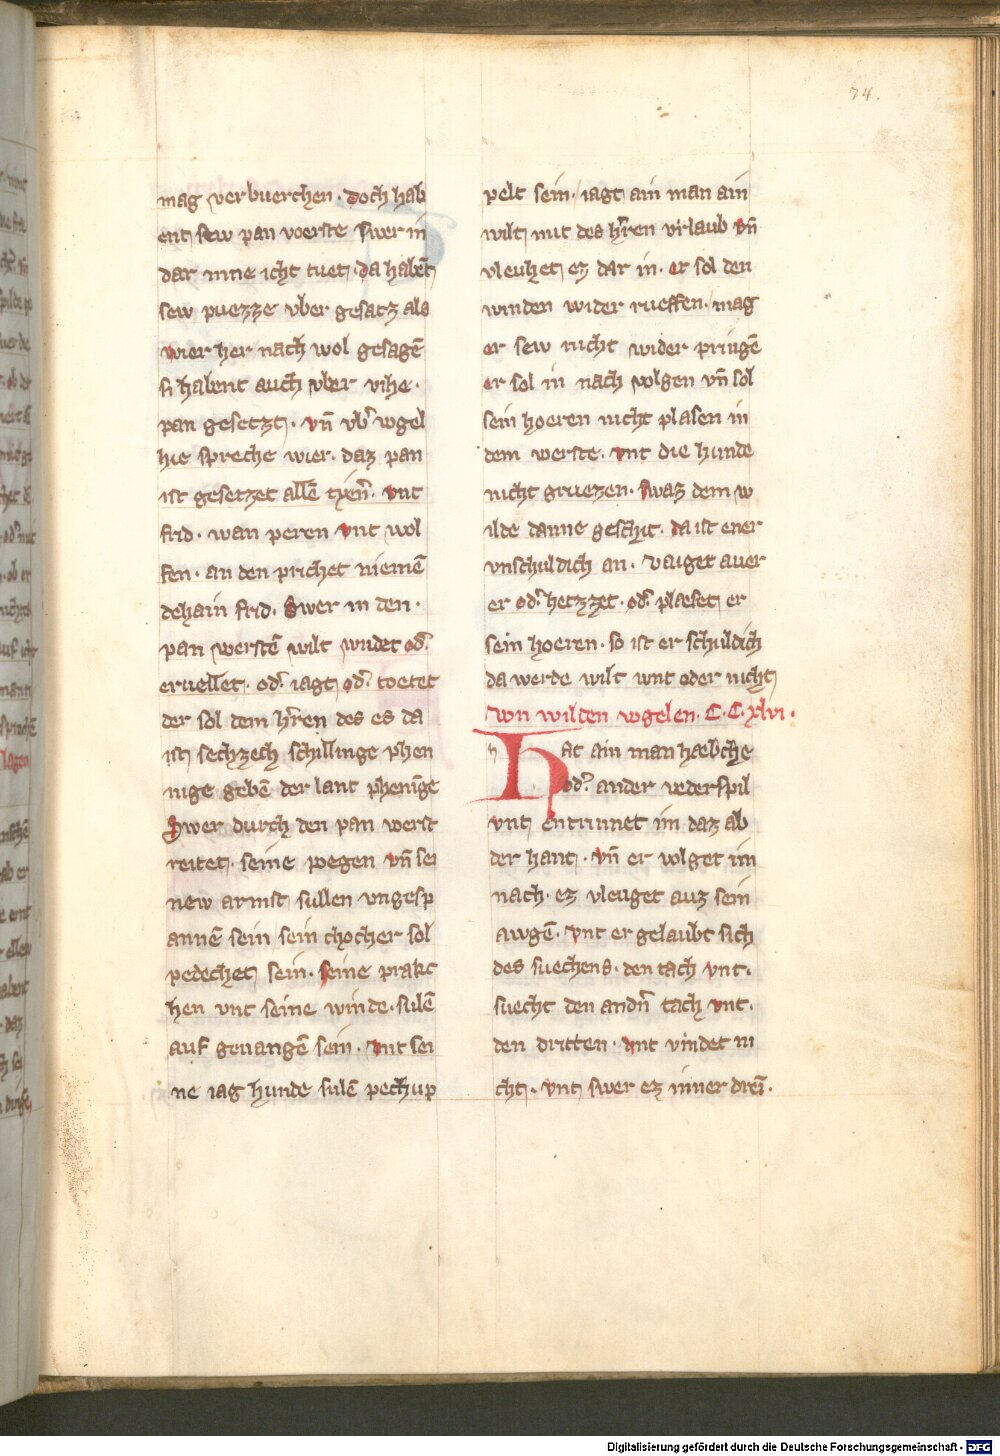 74.
mag verbuerchen · doch hab
ent sew pan voerste swer in
dar inne icht tuet · da habēt
sew puezze vber gesatz als
wier her nach wol gesagē
si habent auch vber vihe ·
pan gesetzt · vn̄ vb̾ vogel
hie spreche wier · daz pan
ist gesetzet allē tyen̾ · vnt
frid · wan peren vnt wol
fen · an den prichet niemē
dehain frid · Swer in den ·
pan werstē wilt wndet od̾
eruellet · od̾ iagt od̾ toetet
der sol dem h̾ren des es da
ist sechzech schillinge phen
nige gebē der lant phenīge
Swer durch den pan werst
reitet · seine pogen vn̄ sei
new armst sullen vngesp
annē sein sein chocher sol
pedechet sein · seine prakc
hen vnt seine winde · sulē
auf geuangē sein · vnt sei
ne iag hunde sulē pechup
pelt sein · iagt ain man ain
wilt mit des h̾ren vrlaub vn̄
vleuhet ez dar in · er sol den
winden wider rueffen · mag
er sew nicht wider pringē
er sol in nach volgen vn̄ sol
sein hoeren nicht plasen in
dem werste · vnt die hunde
nicht gruezen · swaz dem w
ilde danne geschit · da ist ener
vnschuldich an · vauget auer
er od̾ hetzzet · od̾ plaeset er
sein hoeren · so ist er schuldich
da werde wilt wnt oder nicht
von wilden vogelen · C · C · xlvi ·
Hat ain man haebche
od̾ ander vederspil
vnt entrinnet im daz ab
der hant · vn̄ er volget im
nach · ez vleuget auz sein
awgē · vnt er gelaubt sich
des suechens · den tach vnt ·
suecht den andn̄ tach vnt ·
den dritten · vnt vindet ni
cht · vnt swer ez inner drei ·
Digitalisierung gefördert durch die Deutsche Forschungsgemeinschaft - DFG